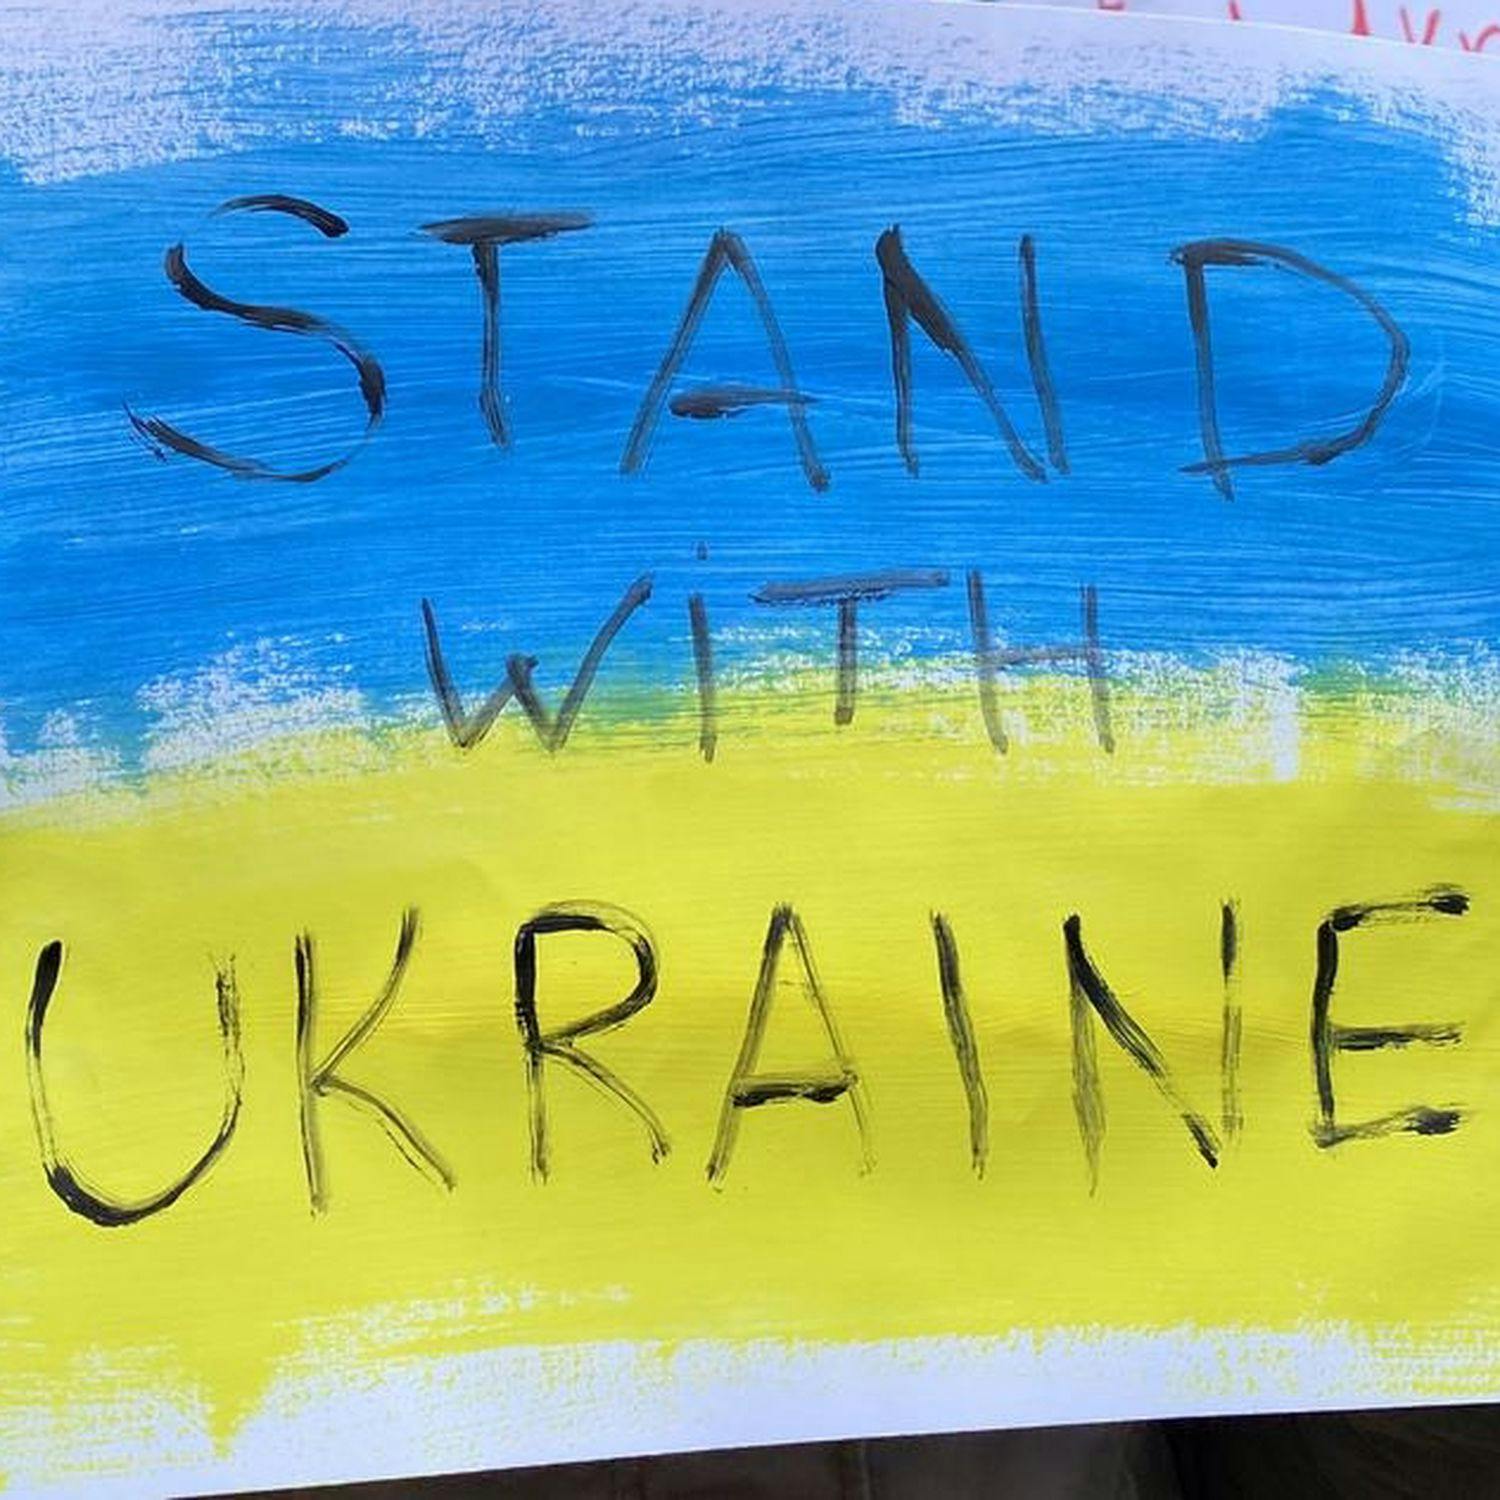 STAND
WiTH
UKRAINE